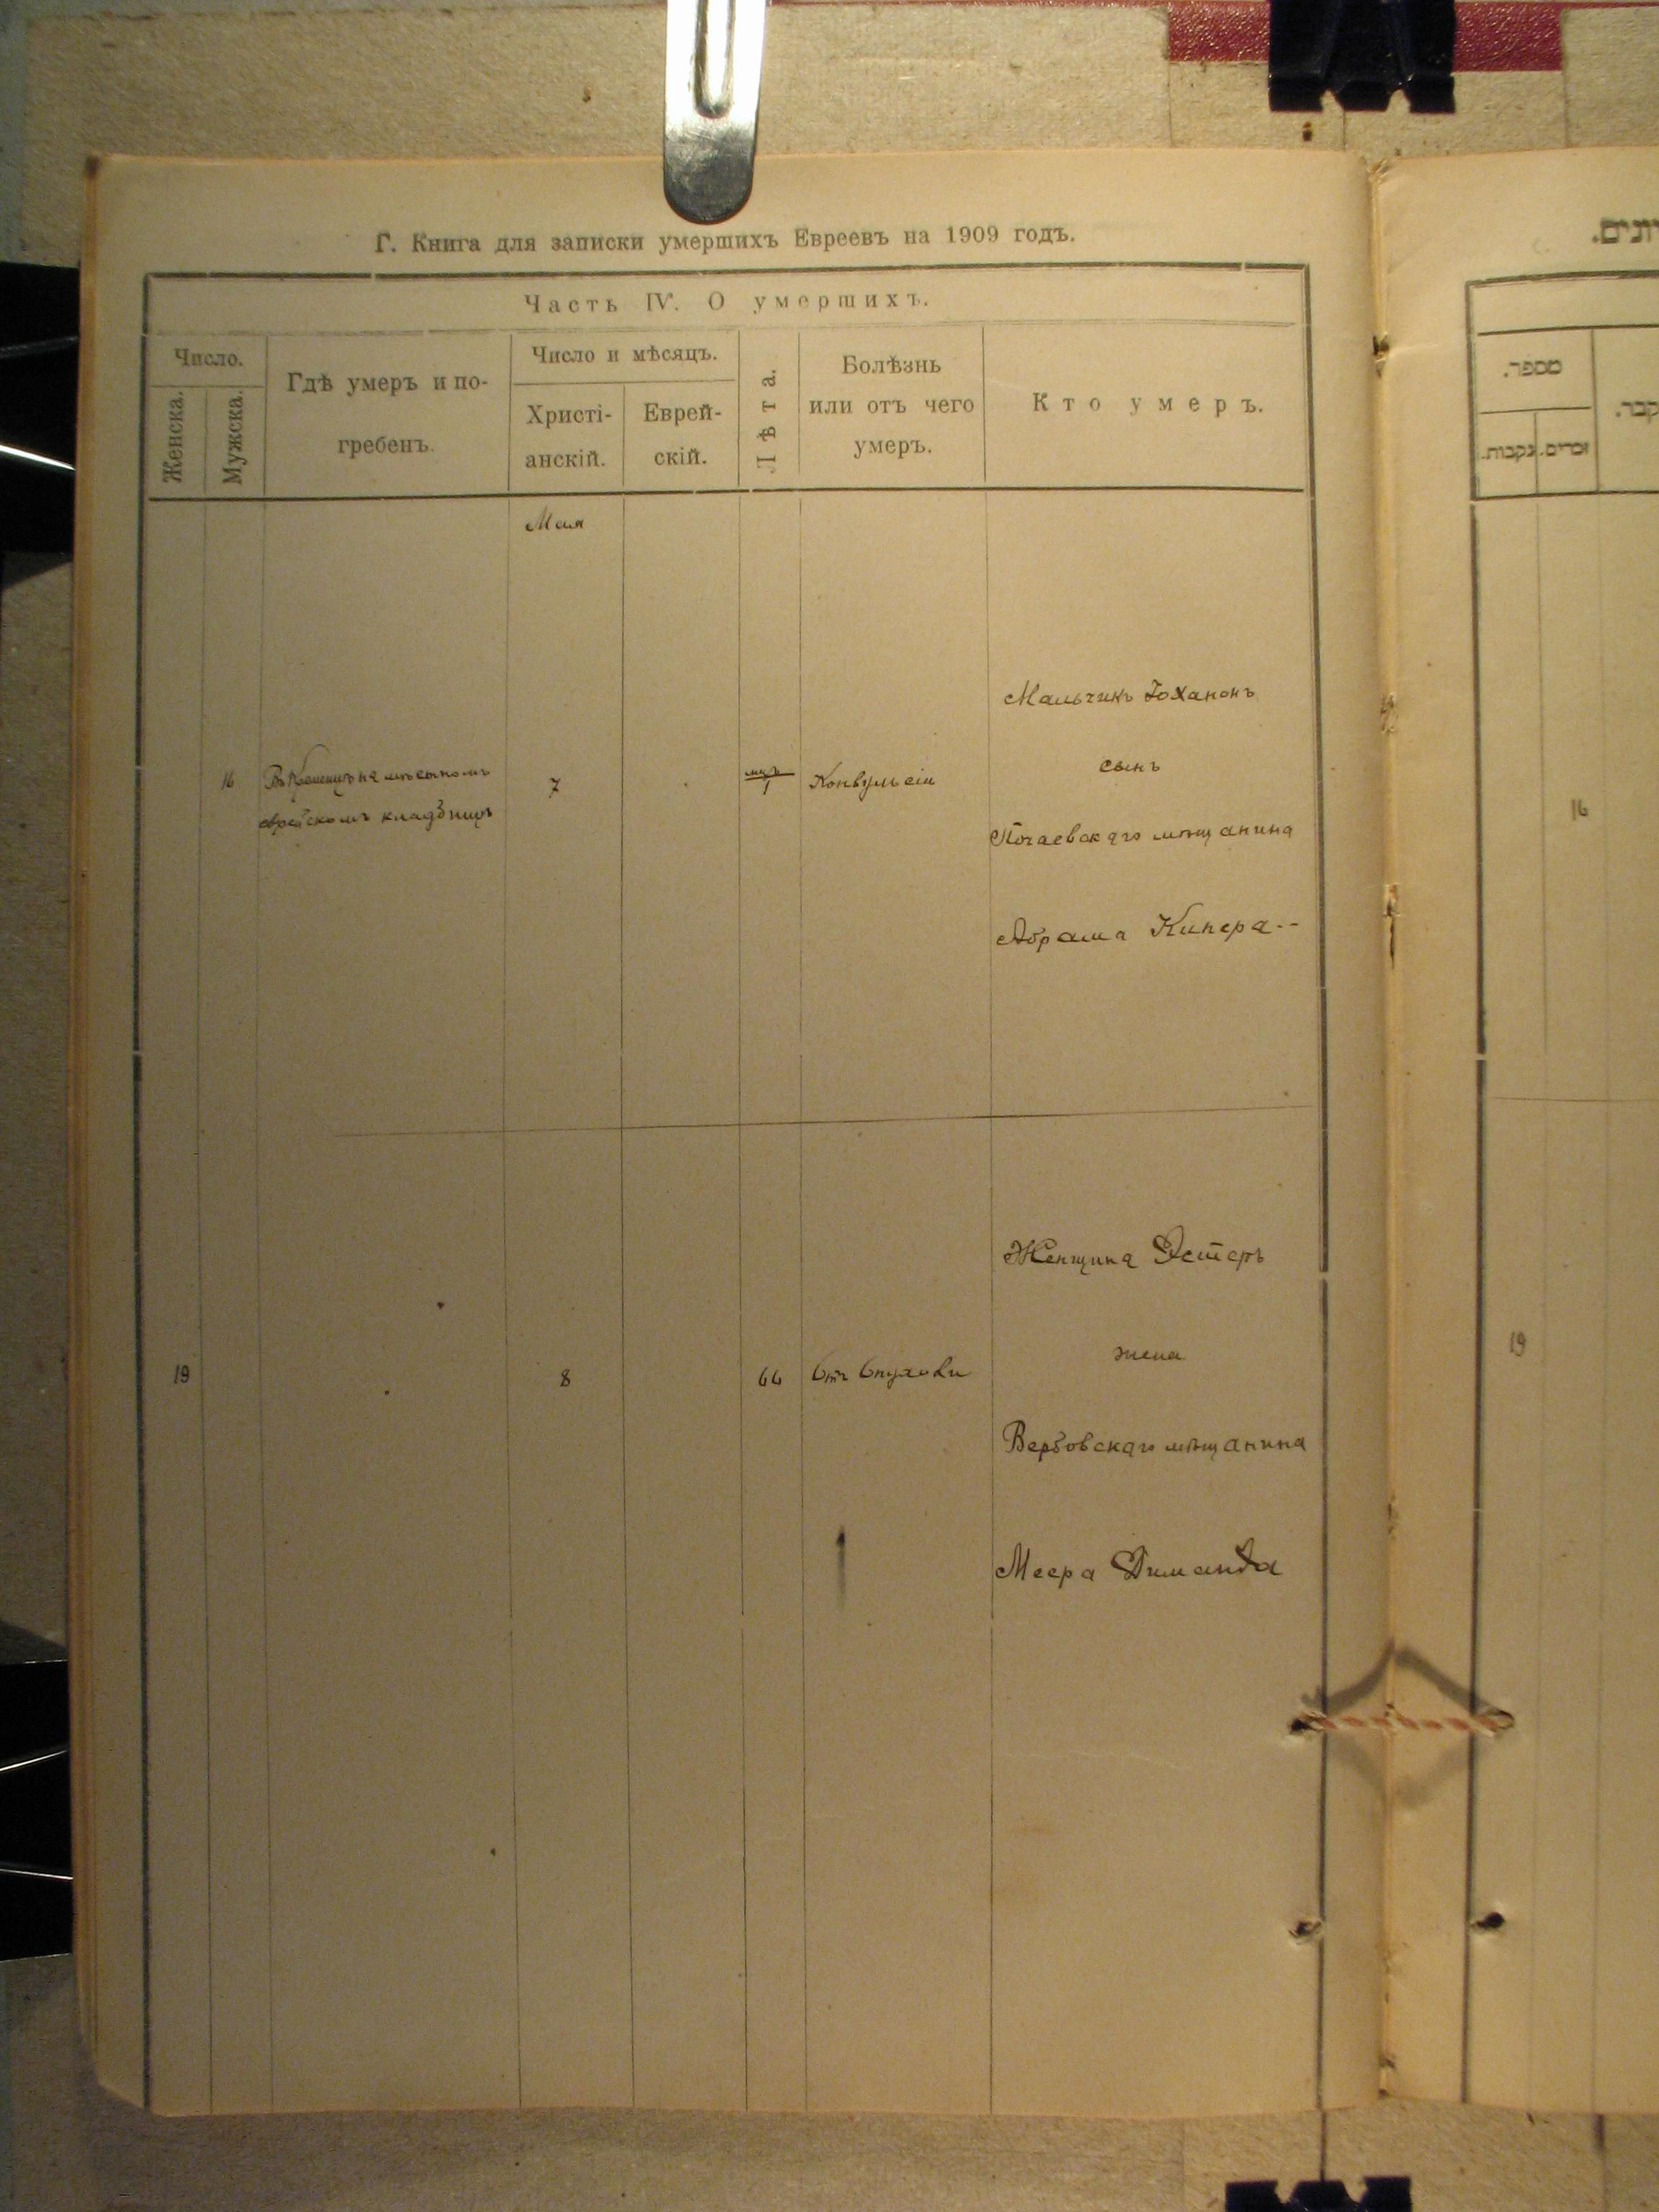 Г. Книга для записки умершихъ Евреевъ на 1909 годъ.
Часть IV. О умершихъ.
Число.
Женска.
Мужска.
Гдѣ умеръ и по-
гребенъ.
Число и мѣсяцъ.
Христі-
анскій.
Еврей-
скій.
Лѣта.
Болѣзнь
или отъ чего
умеръ.
Кто умеръ.
Мая
16
на мѣстномъ
еврейскомъ кладбищѣ
7
мцъ
1
Конвульсіи
Мальчикъ Іохананъ
сынъ
Почаевскаго мѣщанина
Абрама Кипера--
19
8
66
Отъ Опухоли
Женщина Эстеръ
жена
Вербовскаго мѣщанина
Меера Диманда
ונים.
מספר.
זכרים.
נקבות.
קבר.
16
19